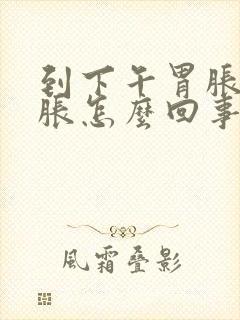 到下午胃脹
脹怎麼回事
風霜疊影